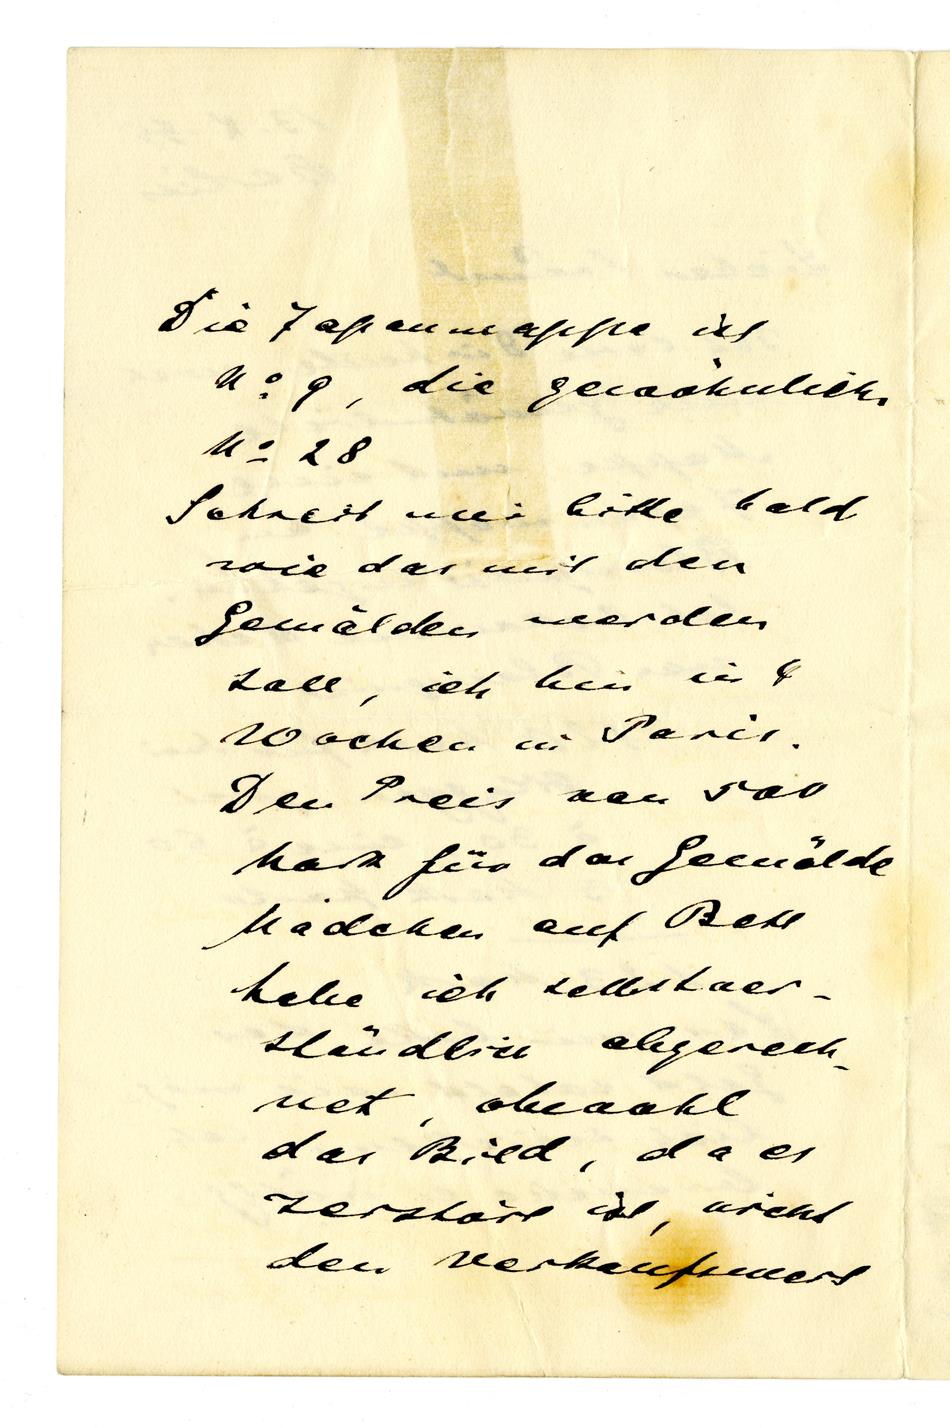 Die Japanmappe ist
No 9, die gewöhnliche
No 28
Schreib mir bitte bald
wie das mit den
Gemälden werden
soll, ich bin in 8
Wochen in Paris.
Den Preis von 500
Mark für das Gemälde
Mädchen auf Bett
habe ich selbstver-
ständlich abgerech-
net, obwohl
das Bild, da es
zerstört ist, nicht
den Verkaufswert